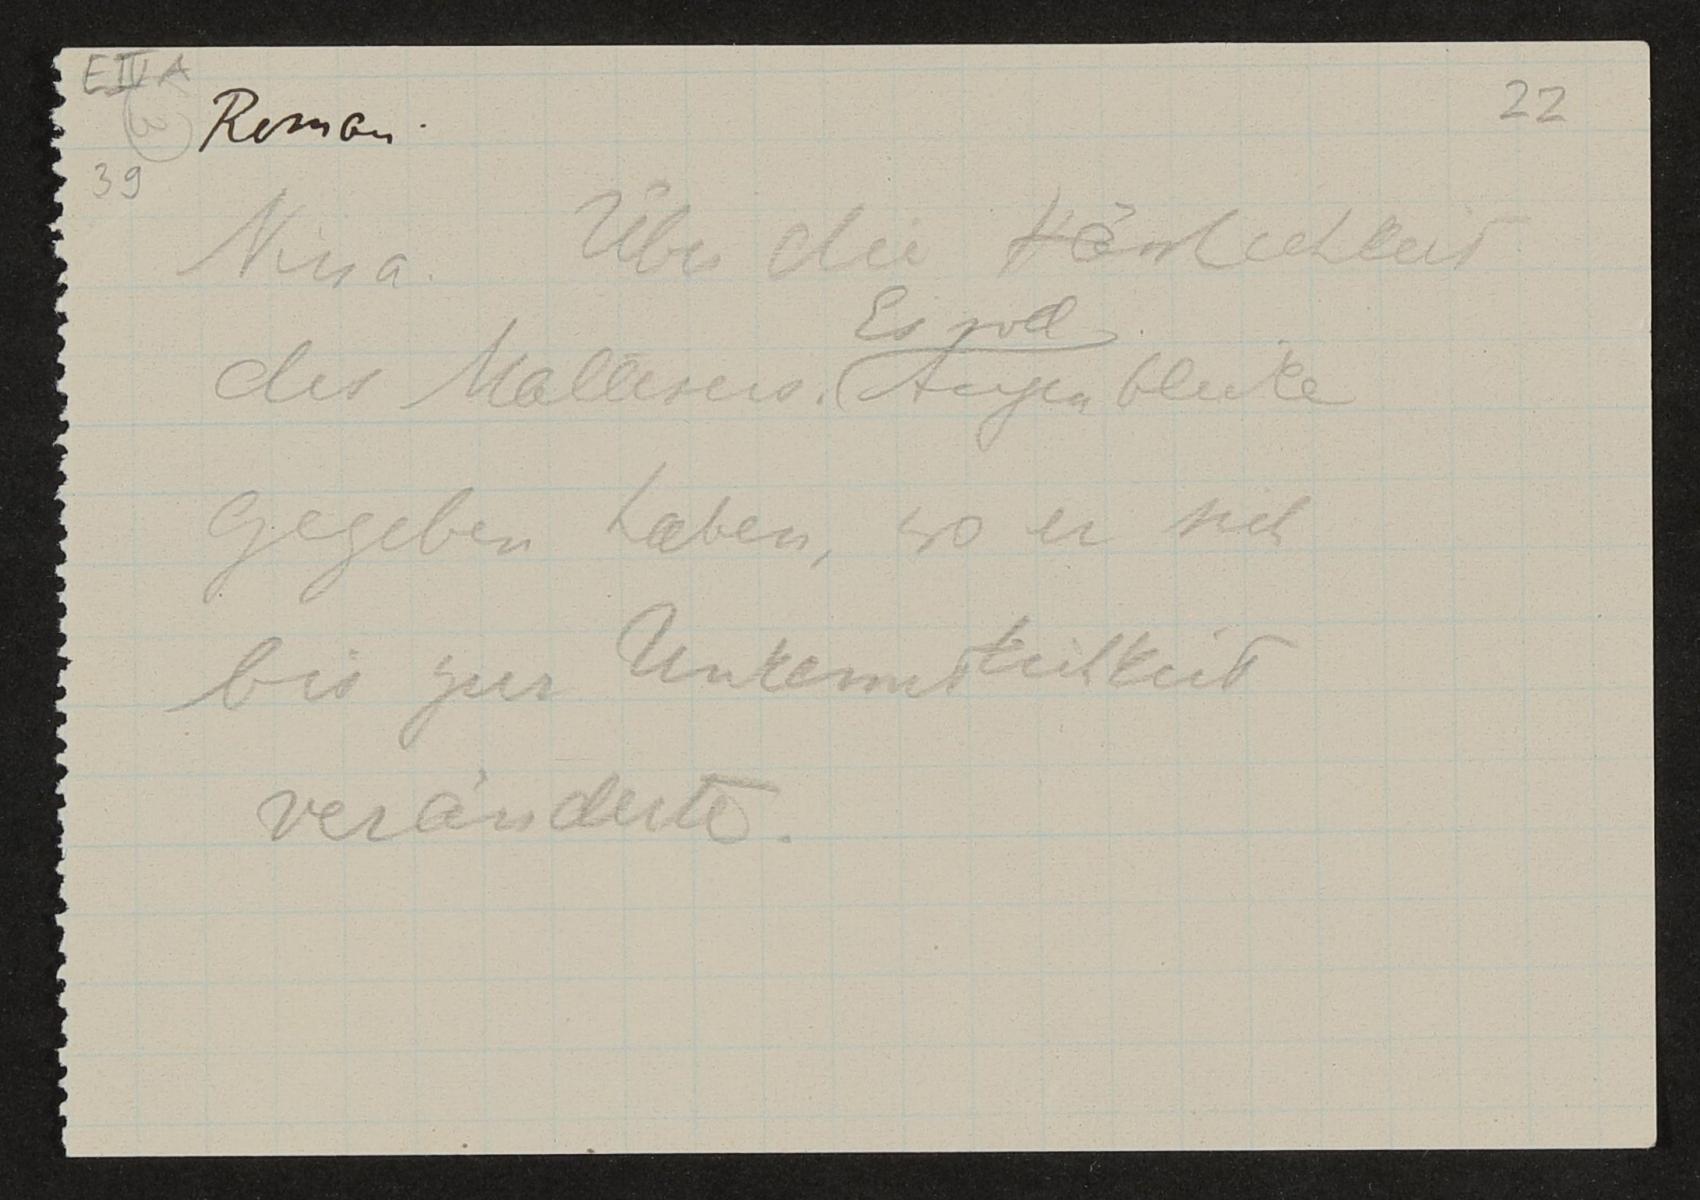 EIVA
22
3
Roman.
39
Nina. Über die Hässlichkeit
des Maltesers. Es soll
Augenblicke
gegeben haben, wo er sich
bis zur Unkenntlichkeit
veränderte.